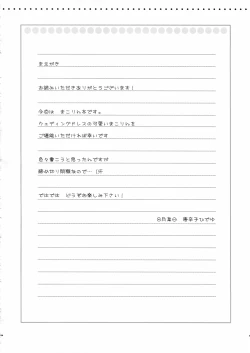 まえがき
お読みいただきありがとうございます!
今回は まこりん本です。
ウェディングドレスの可愛いまこりんを
ご堪能いただければ幸いです
色々書こうと思ったんですが
締め切り間際なので…(汗
ではでは どうぞお楽しみ下さい!